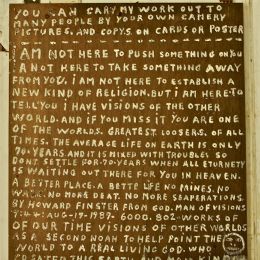 YOU CAN CARY MY WORK OUT TO
MANY PEOPLE BY YOUR OWN CAMERY
PICTURES. AND COPYS ON CARDS OR POSTER
I AM NOT HERE TO PUSH SOMETHING ON YOU
NOT HERE TO TAKE SOMETHING AWAY
FROM YOU. I AM NOT HERE TO ESTABLISH A
NEW KIND OF RELIGION. BUT I AM HERE TO
TELL YOU I HAVE VISIONS OF THE OTHER
WORLD. AND IF YOU MISS IT YOU ARE ONE
OF THE WORLDS. GREATEST. LOOSERS. OF ALL
TIMES. THE AVERAGE LIFE ON EARTH IS ONLY
70 YEARS AND IT IS MIXED WITH TROUBLES SO
DONT. SETTLE FOR 70 YEARS WHEN ALL ETERNETY
IS WAITING OUT THERE FOR YOU IN HEAVEN.
A BETTER PLACE. A BETTE LIFE NO MINES. NO
WAR. NO MORE DEAT. NO MORE SEAPERATIONS.
BY HOWARD FINSTER FROM GOD. MAN OF VISIONS
7:44. AUG-17-1987- 6000. 802- WORKS OF
OF OUR TIME VISIONS OF OTHER WORLDS
AS A SECOND NOAH TO HELP POINT THE
WORLD TO A REAL LIVING GOD. WHO
THIS EARTH AND MAN KIND